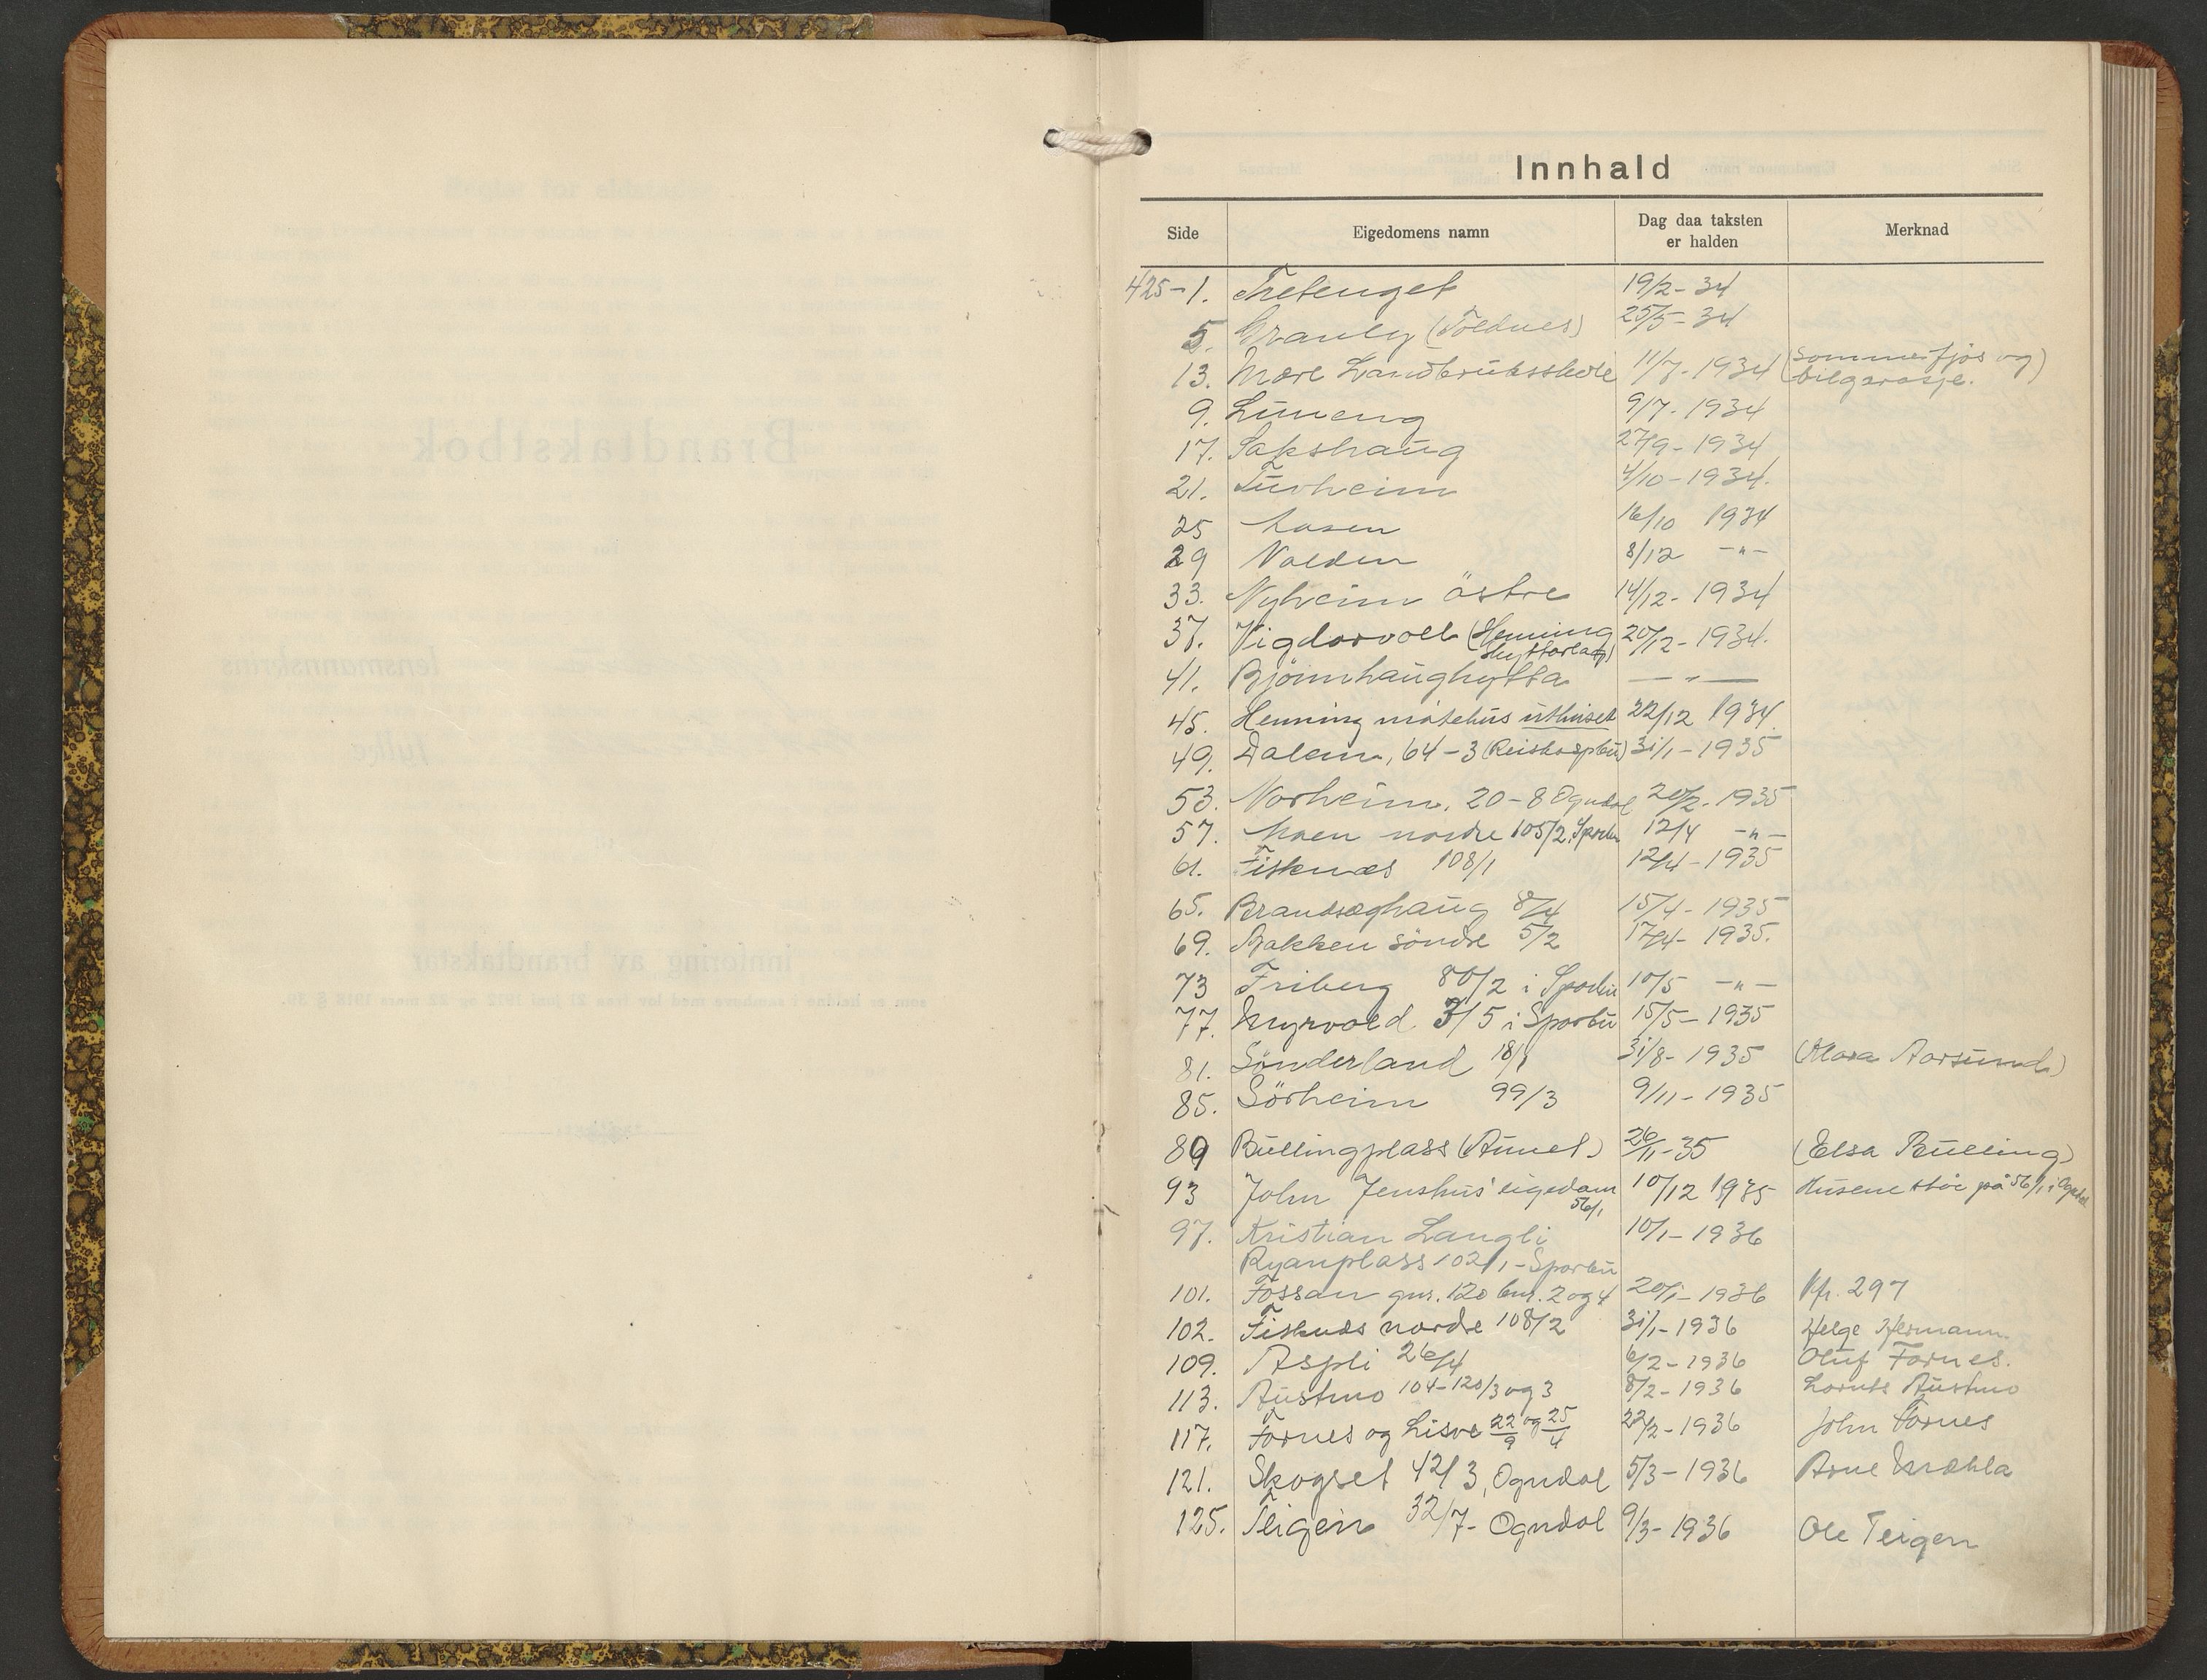 Innhald
Side Eigedomens namn Dag daa taksten er halden Merknad
425-1. Tretenget 19/2-34
5. Granly (Foldnes) 25/5-34
13. Mære Landbruksskole 11/7-1934 (Sommerfjøs og bilgarasje.)
9. Luneng 9/7-1934
17. Sakshaug 27/9-1934
21. Turheim 4/10-1934.
25 Aasen 16/10 1934
29 Volden 8/12 -"-
33. Nyheim östre 14/12-1934
37. Vigdarvoll (Henning Hyttorlag) 20/12-1934.
41. Björnhaughytta —"—
45. Henning møtehus uthuset 22/12 1934.
49. Dalem, 64-3 31/1-1935
53. Norheim, 20-8 Ogndal 20/2-1935
57. Moen nordre 105/2, Sparbu 12/4 -"-
61. Fisknes 108/1 12/4-1935
65. Brandsæghaug 8/4 15/4-1935
69. Bakken söndre 5/2 17/4-1935.
73 Friberg 80/2 i Sparbu 10/5 -"-
77. Myrvold 3/5 i Sparbu 15/5-1935
81. Sönderland 18/1 31/8-1935 (Mara Aarsund)
85. Sörheim 99/3 9/11-1935
89 Bullingplass (Aunet) 26/11-35 (Elsa Bulling)
93 John Jenshus' eigedom 56/1 10/12 1935 Husene står på 56/1 i Ogndal
97. Kristian Langli 10/1-1936
Ryanplass 102/1-Sparbu
101. Fossan gnr. 120 bnr. 2 og 4 20/1-1936 Kfr. 297
102. Fisknes nordre 108/2 31/1-1936 Helge Hermann.
109. Aspli 26/4 6/2-1936 Oluf Fornes.
113. Austmo 104-120/3 og 3 8/2-1936 Lornts Austmo
117. Fornes og Lisve 22/9 og 25/4 22/2-1936 John Fornes
121. Skogset 42/3, Ogndal 5/3-1936 Arne Mæhla
125. Teigen 32/7-Ogndal 9/3-1936 Ole Teigen